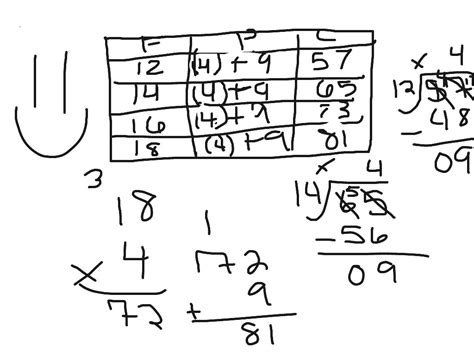 F P C
12 (4)+9 57
14 (4)+9 65
16 (4)+9 73
18 (4)+9 81
x 4
12 57
- 48
09
3
18
x 4
72
1
72
+ 9
81
x 4
14 65
-56
09